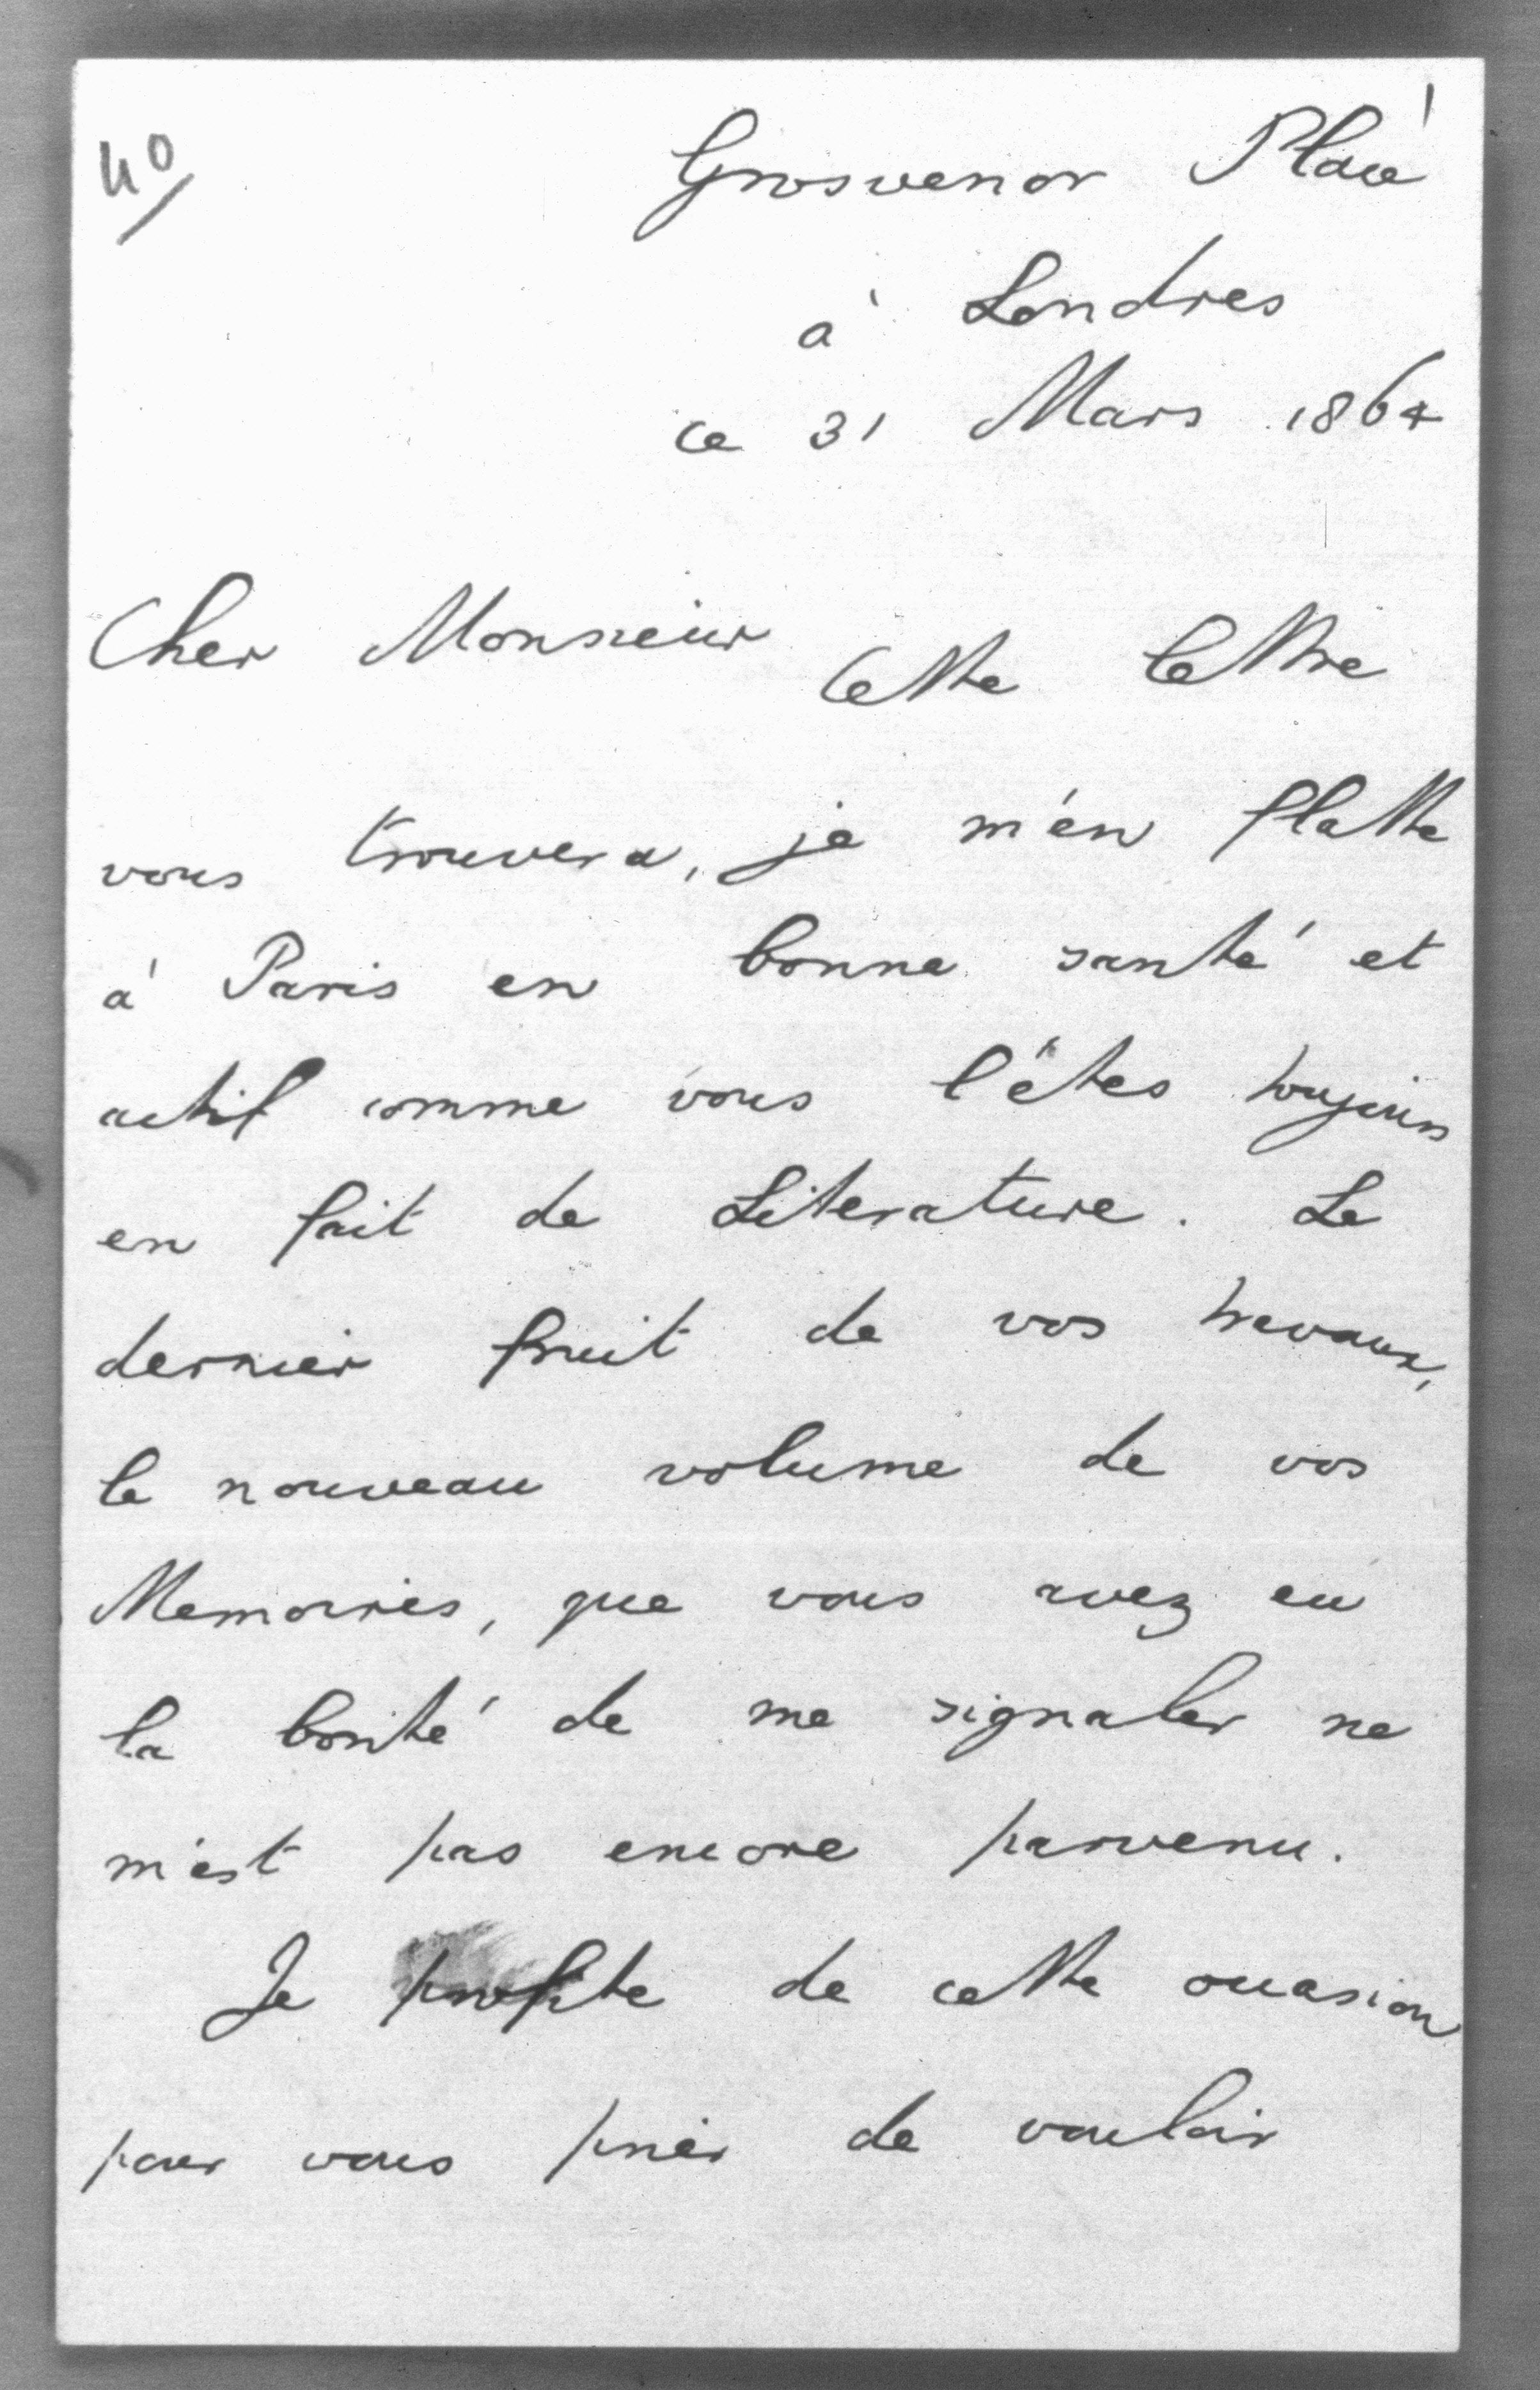 40
Grosvenor Place
à Londres
ce 31 Mars 1864
Cher Monsieur
Cette lettre
vous trouvera, je m'en flatte
à Paris en bonne santé et
actif comme vous l'êtes toujours
en fait de Literature. Le
dernier fruit de vos travaux,
le nouveau volume de vos
Memoires, que vous avez eu
la bonté de me signaler ne
m'est pas encore parvenu.
Je profite de cette occasion
pour vous prier de vouloir